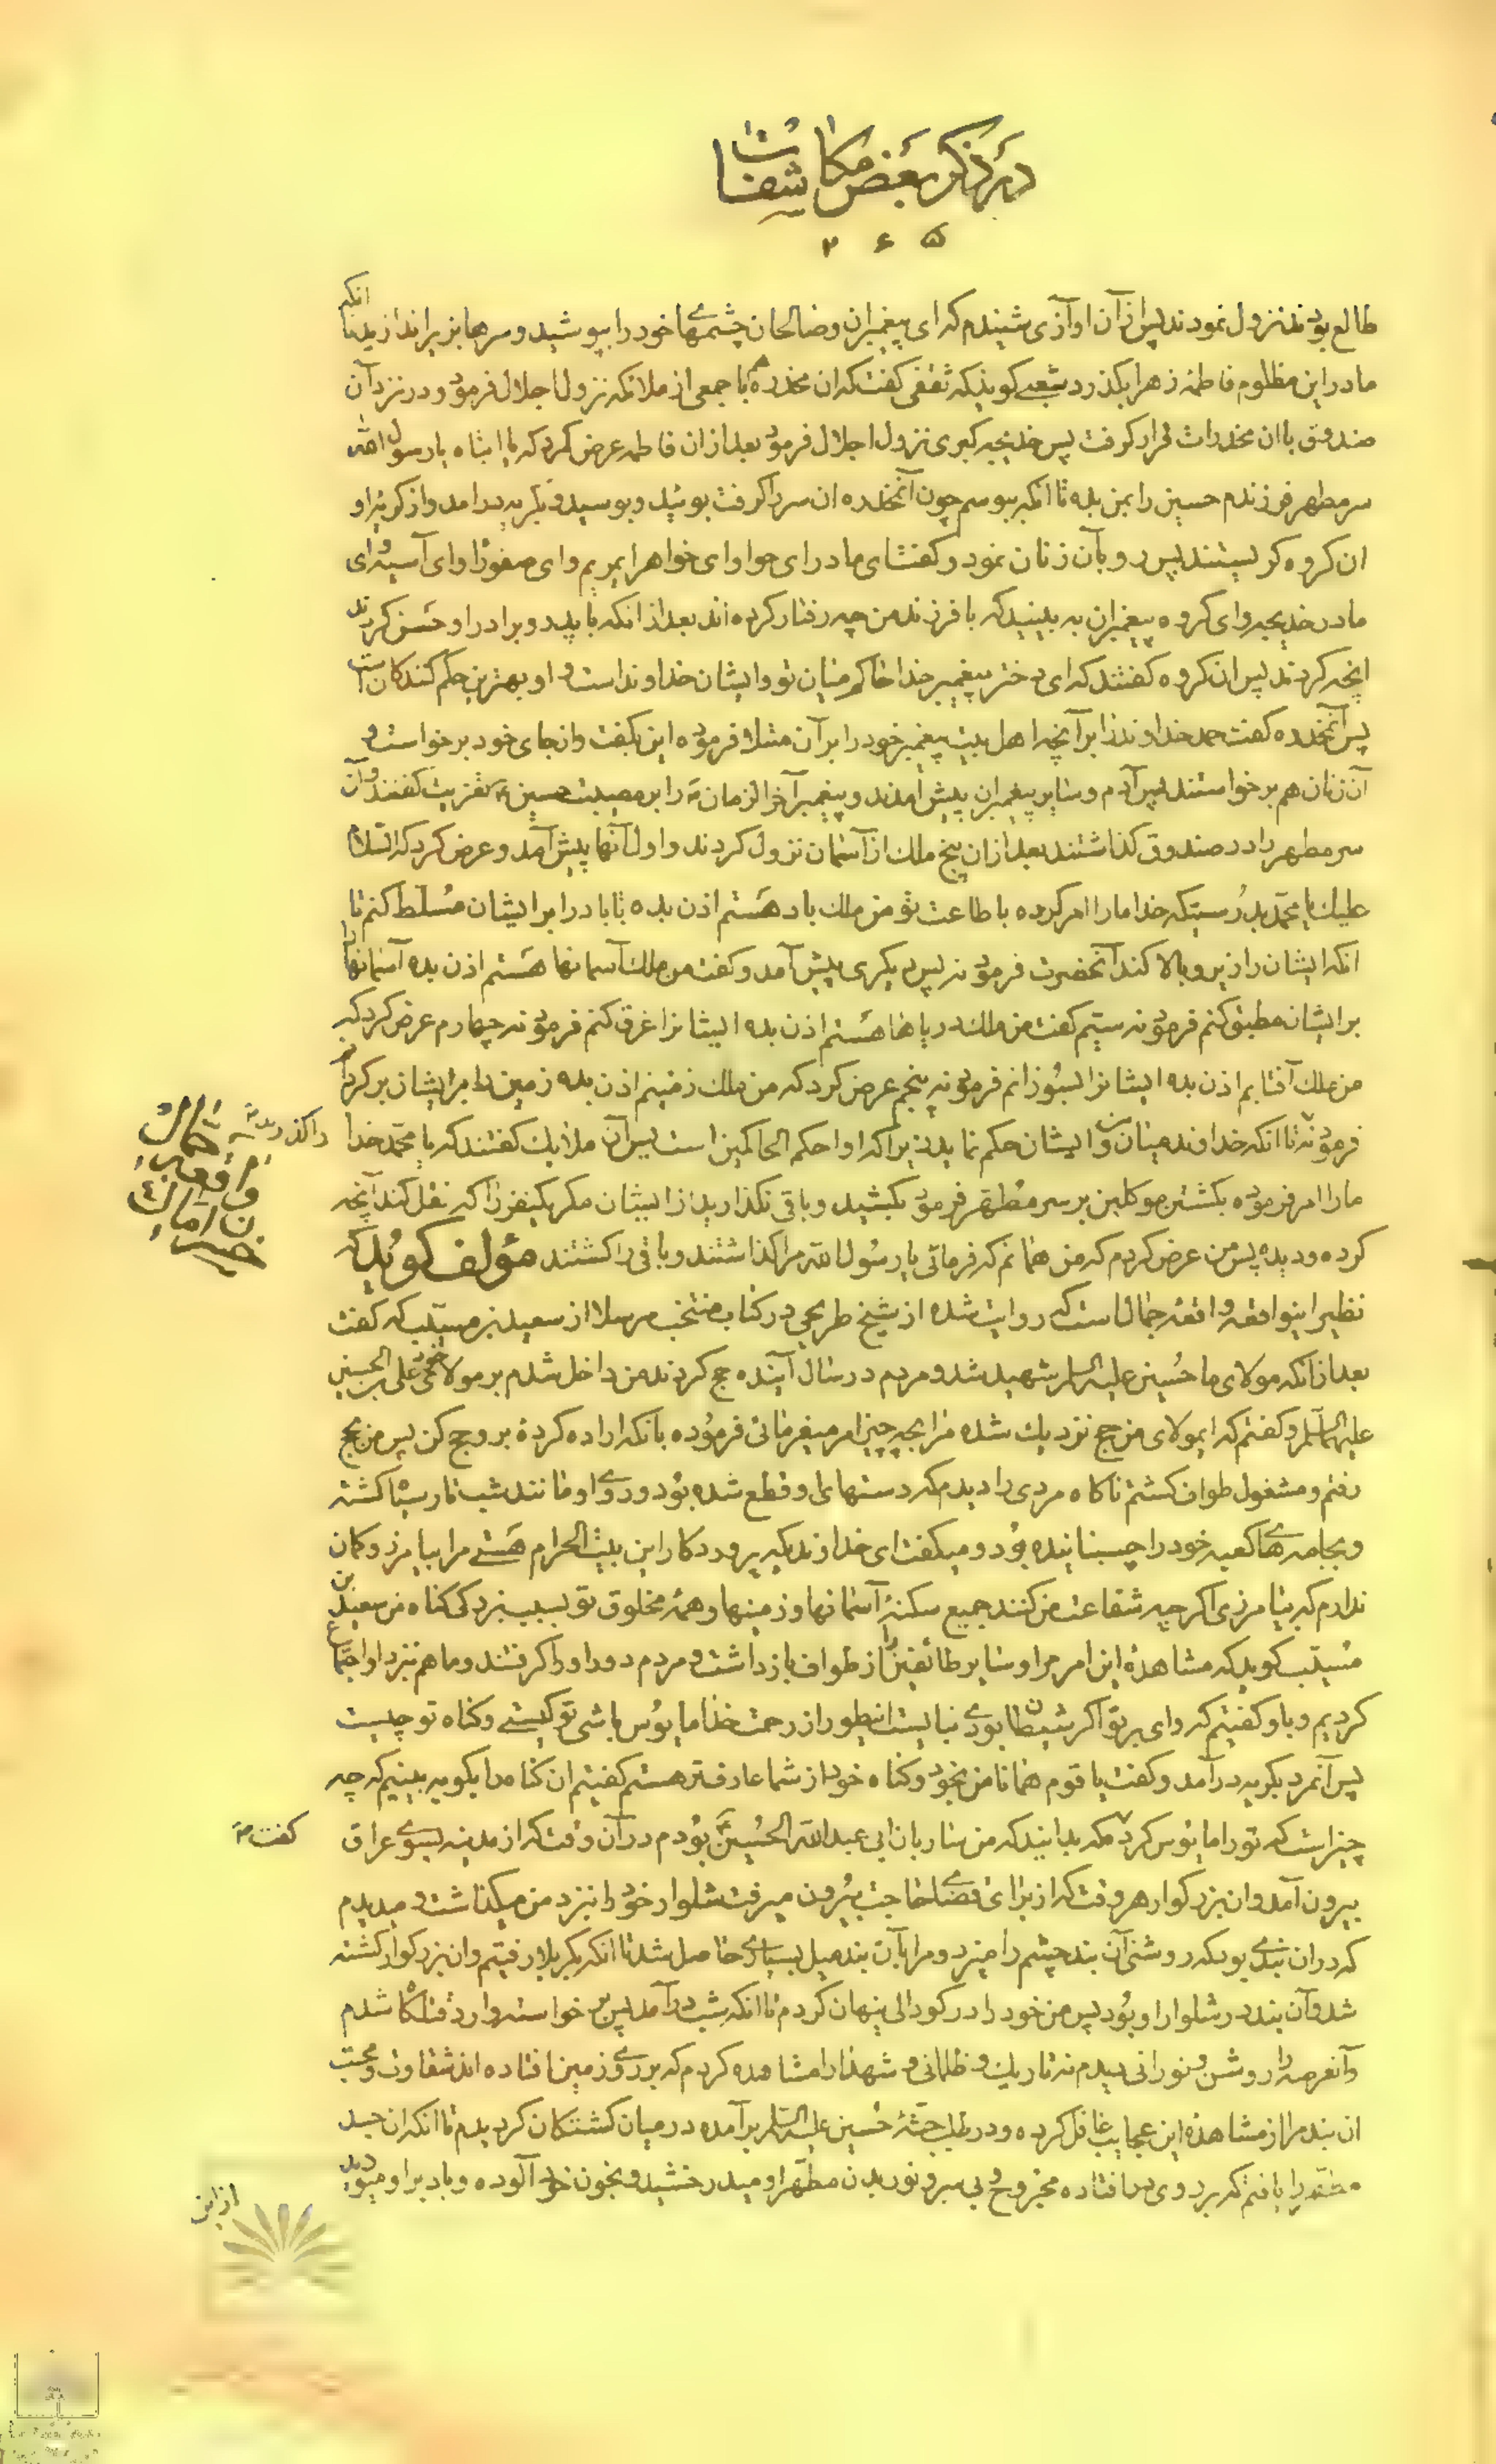 در ذکر بعض مکاشفات
۲۶۵
طالع بودند نزول نمودند پس از آن اوازی شنیدم که ای پیغمبران و صالحان چشمهای خود را بپوشید و سرها بزیر اندازید تا انکه
مادر این مظلوم فاطمه زهرا بکذرد شعبی کوید که ثقفی کفت که ان مخدره با جمعی از ملائکه نزول اجلال فرمود و در نزد آن
صندوق با ان مخدرات قرار کرفت پس خدیجه کبری نزول اجلال فرمود بعد از ان فاطمه عرض کرد که یا ابتاه یا رسول الله
سر مطهر فرزندم حسین را بمن بده تا انکه ببوسم چون آنمخدره ان سر را کرفت بوئید و بوسید و بکریه درامد و از کریه او
ان کروه کریستند پس رو بآن زنان نمود و کفت ای مادر ای حوا و ای خواهر ایمریم و ای صفورا و ای آسیه و ای
مادر خدیجه و ای کروه پیغمبران به بینید که با فرزند من چه رفتار کرده اند بعد از انکه با پدر و برادر او حسن کردند
انچه کردند پس ان کروه کفتند که ای دختر پیغمبر خدا حاکم میان تو و ایشان خداوند است و او بهترین حکم کنندکان است
پس آنمخدره کفت حمد خداوند را بر آنچه اهل بیت پیغمبر خود را بر آن مبتلا فرموده این بکفت و از جای خود برخواست و
آن زنان هم برخواستند پس آدم و سایر پیغمبران پیش آمدند و پیغمبر آخر الزمان را بر مصیبت حسین تعزیت کفتند و آن
سر مطهر را در صندوق کذاشتند بعد از ان پنج ملک از آسمان نزول کردند و اول آنها پیش آمد و عرض کرد که السلام
علیک یا محمد بدرستیکه خدا ما را امر کرده باطاعت تو من ملک باد هستم اذن بده تا باد را بر ایشان مسلط کنم تا
انکه ایشان را زیر و بالا کند آنحضرت فرمود نه پس دیکری پیش آمد و کفت من ملک آسمانها هستم اذن بده آسمانها را
بر ایشان مطبق کنم فرمود نه سیم کفت من ملک دریاها هستم اذن بده ایشانرا غرق کنم فرمود نه چهارم عرض کرد که
من ملک آفتابم اذن بده ایشانرا بسوزانم فرمود نه پنجم عرض کرد که من ملک زمینم اذن بده زمین را بر ایشان بر کردانم
فرمود نه تا انکه خداوند میان من و ایشان حکم نماید زیرا که او احکم الحاکمین است پس آن ملایک کفتند که یا محمد خدا
ما را امر فرموده بکشتن موکلین بر سر مطهر فرمود بکشید و باقی نکذارید از ایشان مکر یکنفر را که نقل کند آنچه
کرده و دیده پس من عرض کردم که من همانم که فرمائی یا رسول الله مرا کذاشتند و باقی را کشتند مؤلف کوید که
نظیر اینواقعه واقعه جمال است که روایت شده از شیخ طریحی در کتاب منتخب مرسلا از سعید بن مسیب که کفت
بعد از انکه مولای ما حسین علیه السلام شهید شد و مردم در سال آینده حج کردند من داخل شدم بر مولا خود علی بن الحسین
علیهما السلام و کفتم که ایمولای من حج نزدیک شده مرا بچه چیز امر میفرمائی فرموده بانکه اراده کردۀ برو حج کن پس من بحج
رفتم و مشغول طواف کشتم ناکاه مردی را دیدم که دستهای او قطع شده بود و روی او مانند شب تار سیاه کشته
و بجامه های کعبه خود را چسبانیده بود و میکفت ای خداوندیکه پروردکار این بیت الحرام هستی مرا بیامرز و کمان
ندارم که بیامرزی اکر چه شفاعت من کنند جمیع سکنۀ آسمانها و زمینها و همۀ مخلوق تو بسبب بزرکی کناه من سعید بن
مسیب کوید که مشاهدۀ این امر مرا و سایر طائفین را از طواف بازداشت و مردم دور او را کرفتند و ما هم نزد او اجتماع
کردیم و باو کفتیم که وای بر تو اکر شیطان بودی نبایست اینطور از رحمت خدا مایوس باشی تو کیستی و کناه تو چیست
پس آنمرد بکریه درآمد و کفت یا قوم همانا من بخود و کناه خود از شما عارفتر هستم کفتیم ان کناه را بکو به بینیم که چه
چیز است که تو را مایوس کرده کفت بدانید که من ساربان ابی عبد الله الحسین بودم در آن وقت که از مدینه بسوی عراق
بیرون آمد و ان بزرکوار هر وقت که از برای قضای حاجت بیرون میرفت شلوار خود را نزد من میکذاشت و میدیدم
که در ان بندی بود که روشنی آن بند چشم را میزد و مرا بآن بند میل بسیاری حاصل شد تا انکه بکربلا رفتیم و ان بزرکوار کشته
شد و آن بند در شلوار او بود پس من خود را در کودالی پنهان کردم تا انکه شب درآمد پس برخواسته وارد قتلکاه شدم
و آنعرصه را روشن و نورانی دیدم نه تاریک و ظلمانی و شهدا را مشاهده کردم که بر روی زمین افتاده اند شقاوت و محبت
ان بند مرا از مشاهدۀ این عجایب غافل کرده و در طلب جثۀ حسین علیه السلام برآمده در میان کشتکان کردیدم تا انکه ان جسد
را یافتم که بر روی در افتاده مجروح و بی سر و نور بدن مطهر او میدرخشید و بخون خود آلوده و باد بر او میوزید
واقعه جمال
کفت
از این